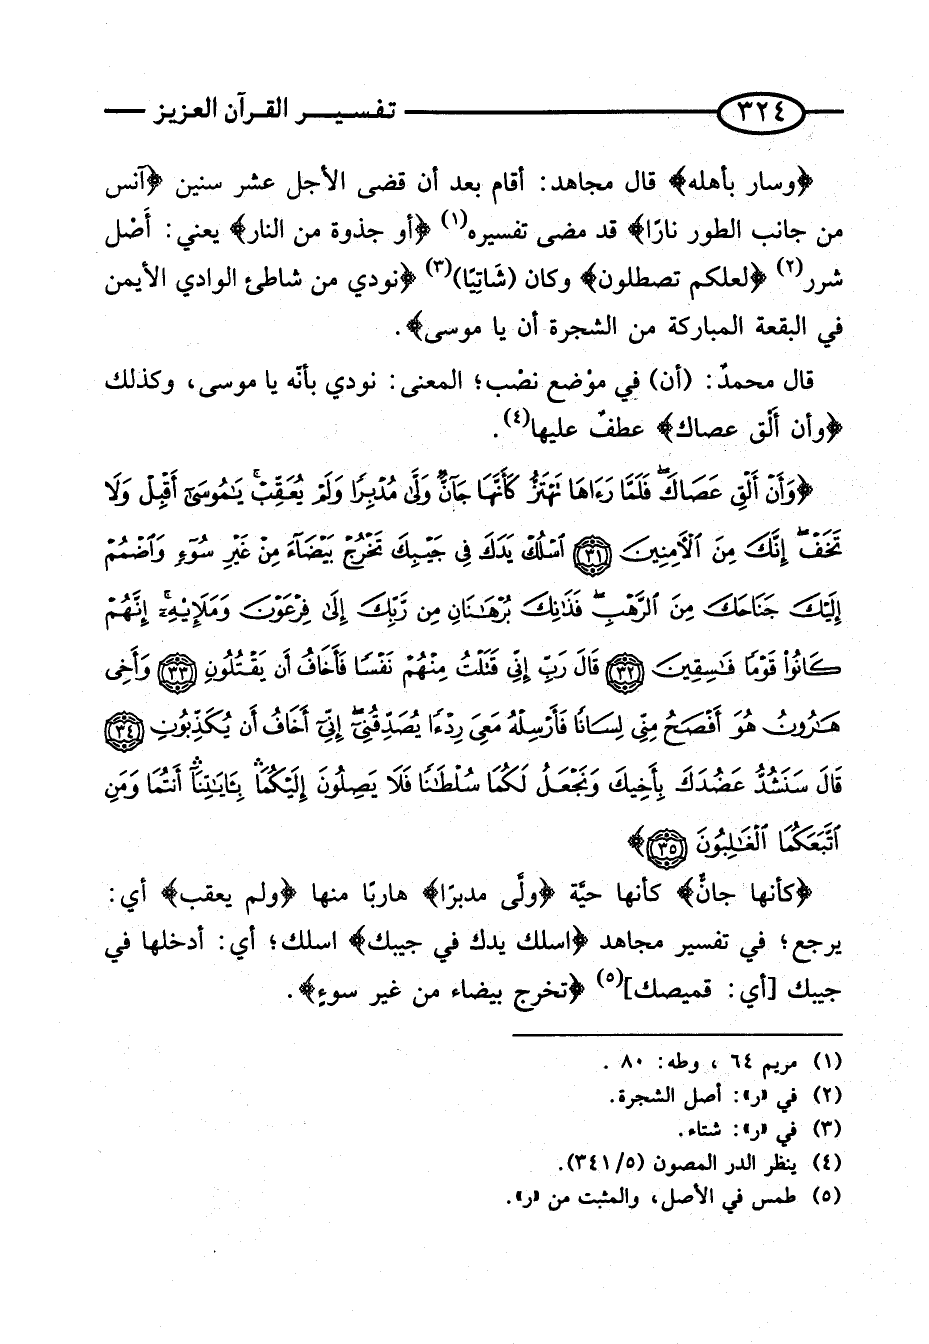 ٣٢٤ تفسير القرآن العزيز
﴿وسار بأهله﴾ قال مجاهد: أقام بعد أن قضى الأجل عشر سنين ﴿آنس
من جانب الطور نارًا﴾ قد مضى تفسيره(١) ﴿أو جذوة من النار﴾ يعني: أَصْل
شرر(٢) ﴿لعلكم تصطلون﴾ وكان (شَاتِيًا)(٣) ﴿نودي من شاطئ الوادي الأيمن
في البقعة المباركة من الشجرة أن يا موسى﴾.
قال محمدٌ: (أن) في موْضع نصْب؛ المعنى: نودي بأنّه يا موسى، وكذلك
﴿وأن أَلْق عصاك﴾ عطفٌ عليها(٤).
﴿وَأَنْ أَلْقِ عَصَاكَۖ فَلَمَّا رَءَاهَا تَهْتَزُّ كَأَنَّهَا جَآنٌّ وَلَّىٰ مُدْبِرًا وَلَمْ يُعَقِّبْۚ يَٰمُوسَىٰٓ أَقْبِلْ وَلَا
تَخَفْۖ إِنَّكَ مِنَ ٱلْأٓمِنِينَ ٣١ ٱسْلُكْ يَدَكَ فِى جَيْبِكَ تَخْرُجْ بَيْضَآءَ مِنْ غَيْرِ سُوٓءٍ وَٱضْمُمْ
إِلَيْكَ جَنَاحَكَ مِنَ ٱلرَّهْبِۖ فَذَٰنِكَ بُرْهَٰنَانِ مِن رَّبِّكَ إِلَىٰ فِرْعَوْنَ وَمَلَإِيْهِۦٓۚ إِنَّهُمْ
كَانُوا۟ قَوْمًا فَٰسِقِينَ ٣٢ قَالَ رَبِّ إِنِّى قَتَلْتُ مِنْهُمْ نَفْسًا فَأَخَافُ أَن يَقْتُلُونِ ٣٣ وَأَخِى
هَٰرُونُ هُوَ أَفْصَحُ مِنِّى لِسَانًا فَأَرْسِلْهُ مَعِىَ رِدْءًا يُصَدِّقُنِىٓۖ إِنِّىٓ أَخَافُ أَن يُكَذِّبُونِ ٣٤
قَالَ سَنَشُدُّ عَضُدَكَ بِأَخِيكَ وَنَجْعَلُ لَكُمَا سُلْطَٰنًا فَلَا يَصِلُونَ إِلَيْكُمَاۛ بِـَٔايَٰتِنَآۛ أَنتُمَا وَمَنِ
ٱتَّبَعَكُمَا ٱلْغَٰلِبُونَ ٣٥﴾
﴿كأنها جانٌّ﴾ كأنها حيَّة ﴿ولَّى مدبرًا﴾ هاربًا منها ﴿ولم يعقب﴾ أي:
يرجع؛ في تفسير مجاهد ﴿اسلك يدك في جيبك﴾ اسلك؛ أي: أدخلها في
جيبك [أي: قميصك](٥) ﴿تخرج بيضاء من غير سوءٍ﴾.
(١) مريم ٦٤ ، وطه: ٨٠ .
(٢) في «ر»: أصل الشجرة.
(٣) في «ر»: شتاء.
(٤) ينظر الدر المصون (٥/ ٣٤١).
(٥) طمس في الأصل، والمثبت من «ر».